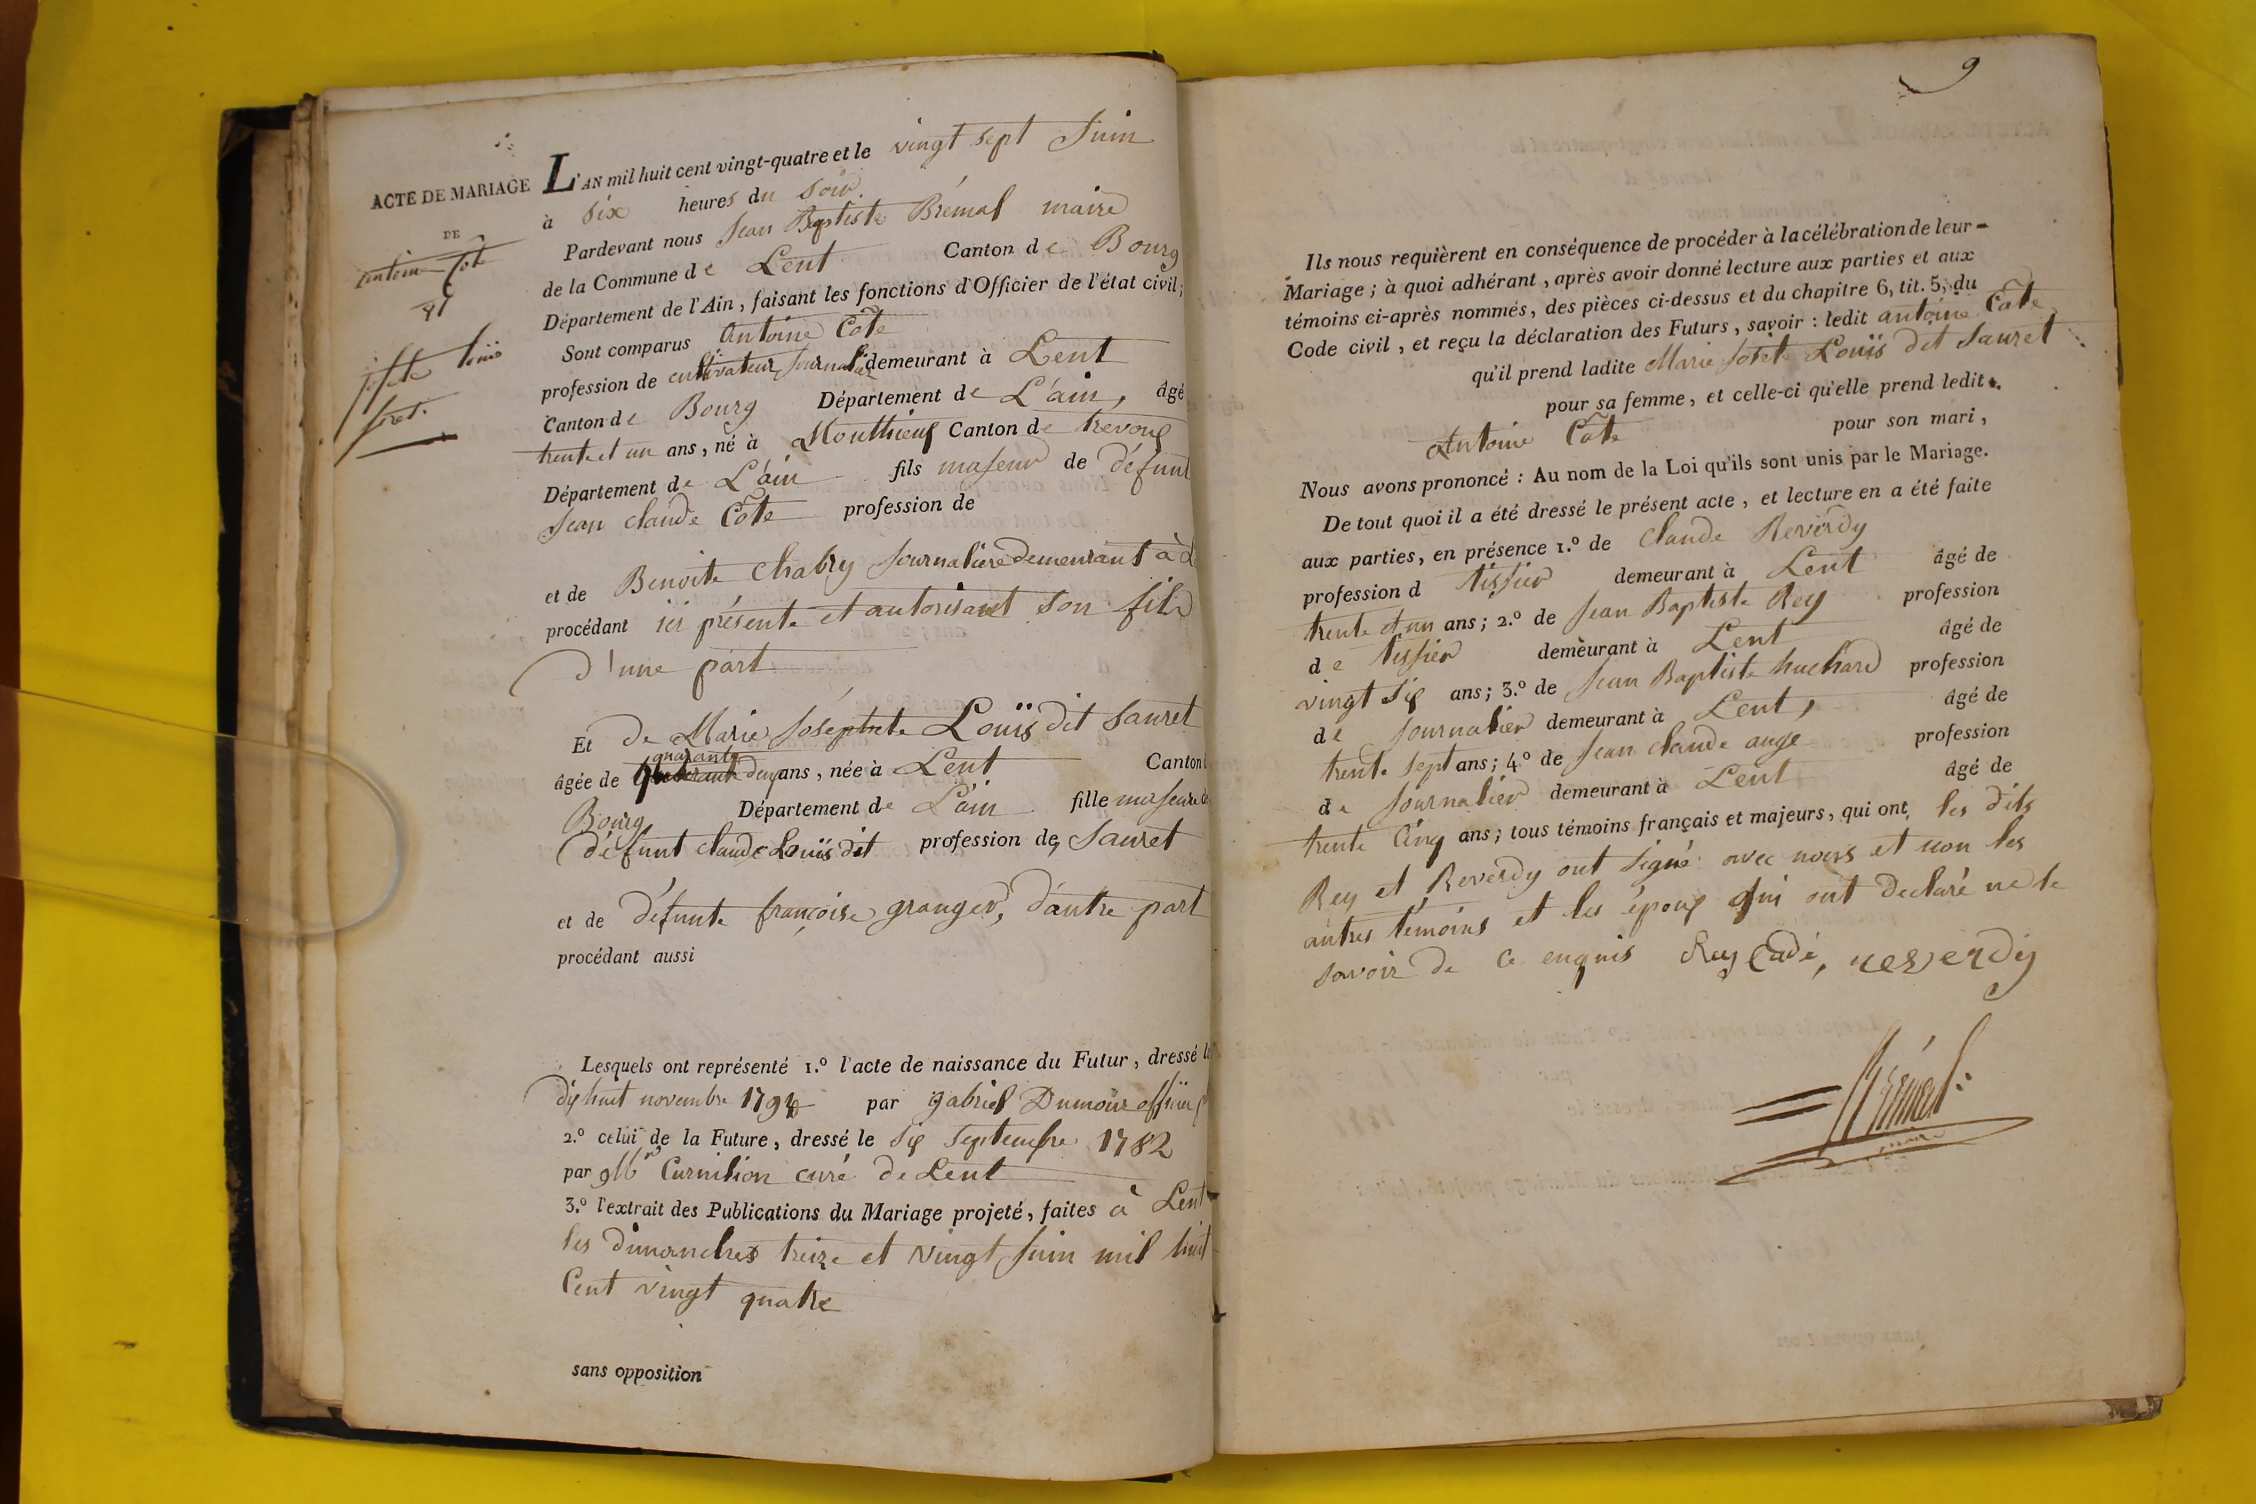 ACTE DE MARIAGE
DE
antoine Cote
et
josete Louis
L'AN mil huit cent vingt-quatre et le vingt sept Juin
à six heures du soir.
Pardevant nous Jean Baptiste Brémal maire
de la Commune de Lent Canton de Bourg
Département de l'Ain, faisant les fonctions d'Officier de l'état civil;
Sont comparus Antoine Côte
profession de cultivateur Journalier demeurant à Lent
Canton de Bourg Département de L'ain, âgé
trente et un ans, né à Monthieux Canton de trevoux
Département de L'ain fils majeur de défunt
Jean claude Côte profession de
et de Benoite Chabry Journalière demeurant à
procédant ici présente et autorisant son fils
d'une part
Et de Marie Joséphete Louïs dit Sauret
âgée de quarante deux ans, née à Lent Canton
Bourg Département de L'ain fille majeure de
défunt claude Louïs dit profession de, Sauret
et de défunte françoise granger, d'autre part
procédant aussi
Lesquels ont représenté 1.º l'acte de naissance du Futur, dressé le
dix huit novembre par gabriel Dumour officier
2.º celui de la Future, dressé le six septembre 1782
par Mr Curnilion curé de Lent
3.º l'extrait des Publications du Mariage projeté, faites à Lent
les dimanches treize et vingt Juin mil huit
Cent vingt quatre
sans opposition
9
Ils nous requièrent en conséquence de procéder à la célébration de leur
Mariage; à quoi adhérant, après avoir donné lecture aux parties et aux
témoins ci-après nommés, des pièces ci-dessus et du chapitre 6, tit. 5, du
Code civil, et reçu la déclaration des Futurs, savoir: ledit antoine Cote
qu'il prend ladite Marie Josete Louïs dit Sauret
pour sa femme, et celle-ci qu'elle prend ledit
Antoine Côte pour son mari,
Nous avons prononcé: Au nom de la Loi qu'ils sont unis par le Mariage.
De tout quoi il a été dressé le présent acte, et lecture en a été faite
aux parties, en présence 1.º de Claude Reverdy
profession d tissier demeurant à Lent âgé de
trente et un ans; 2.º de Jean Baptiste Rey profession
de tissier demeurant à Lent âgé de
vingt six ans; 3.º de Jean Baptiste huchard profession
de Journalier demeurant à Lent, âgé de
trente sept ans; 4.º de Jean claude auge profession
de Journalier demeurant à Lent âgé de
trente Cinq ans; tous témoins français et majeurs, qui ont, les dits
Rey et Reverdy ont signé avec nous et non les
autres témoins et les époux qui ont declaré ne le
savoir de ce enquis Rey Cadé, reverdy
Brémal
maire